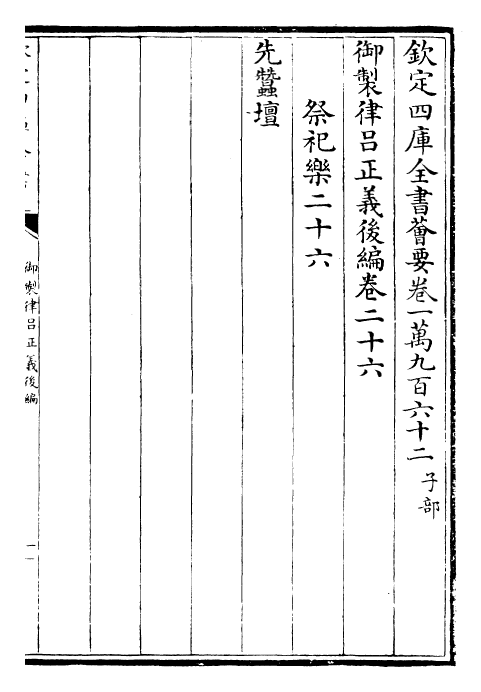 欽定四庫全書薈要卷一萬九百六十二子部
御製律呂正義後編卷二十六
祭祀樂二十六
先蠶壇
御製律呂正義後編
一